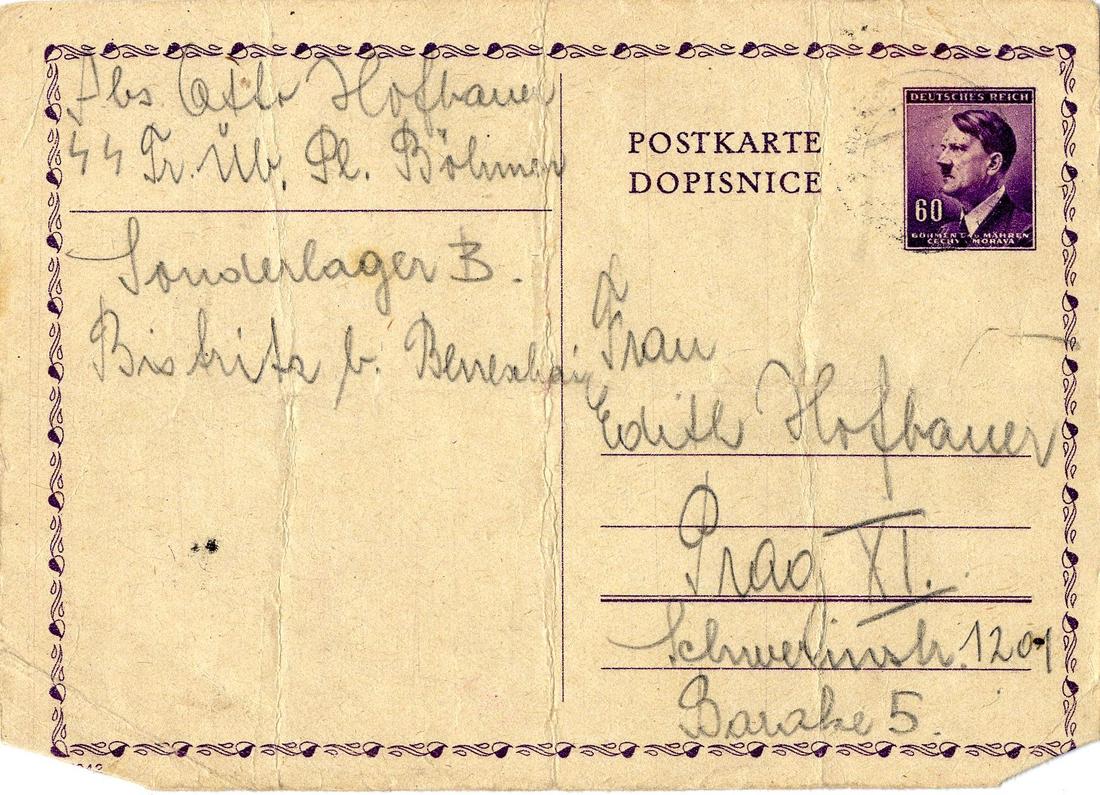 Abs Otto Hofbauer
SS Tr. Üb. Pl. Böhmen
Sonderlager B.
Bistritz b. Beneschau
POSTKARTE
DOPISNICE
DEUTSCHES REICH
60
BÖHMEN UND MÄHREN
ČECHY A MORAVA
Frau
Edith Hofbauer
Prag XI.
Schwerinstr. 1201
Barake 5.